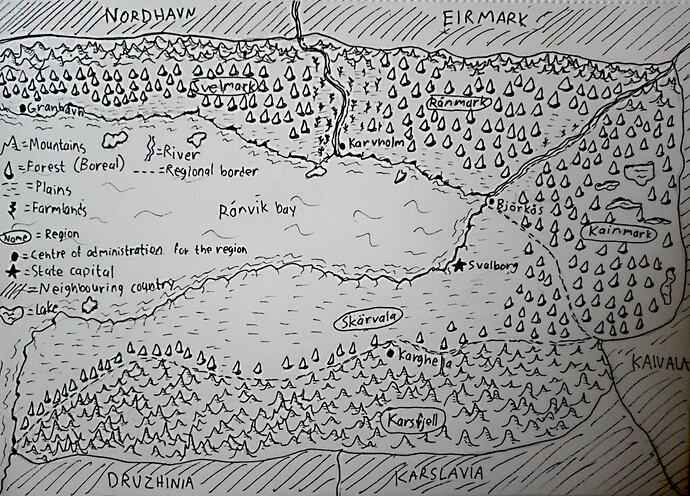 NORDHAVN
EIRMARK
Svelmark
Rånmark
Granhavn
Karvholm
=Mountains
=River
=Forest (Boreal)
=Regional border
=Plains
=Farmlands
Name = Region
=Centre of administration for the region
=State capital
=Neighbouring country
=Lake
Rånvik bay
Björkås
Kainmark
Svalborg
Skärvala
Karghella
KAIVALA
Karsfjell
DRUZHINIA
KARSLAVIA